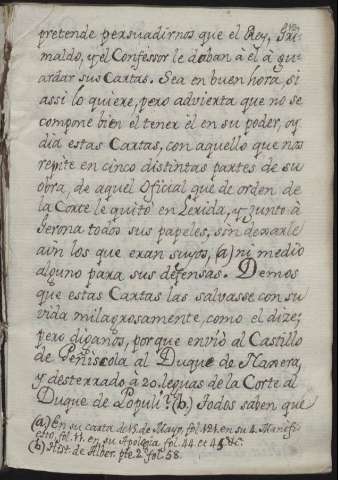 pretende persuadirnos que el Rey, Gri-
maldo, y el Confessor le daban à él à gu-
ardar sus Cartas. Sea en buen hora, si
assi lo quiere, pero advierta que no se
compone bien el tener él en su poder, oy
dia estas Cartas, con aquello que nos
repite en cinco distintas partes de su
obra, de aquel Oficial que de orden de
la Corte le quitò en Lerida, y junto à
Gerona todos sus papeles, sin dexarle
aùn los que eran suyos, (a) ni medio
alguno para sus defensas. Demos
que estas Cartas las salvasse con su
vida milagrosamente, como el dize;
pero diganos, porque enviò al Castillo
de Peñiscola al Duque de Naxera,
y desterrado à 20. leguas de la Corte al
Duque de Populi? (b.) Todos saben que
(a.) En su carta de 15. de Mayo, fol. 121. en su 4. Manifi-
esto, fol. 11. en su Apologia fol. 44. et 45. &c.
(b.) Hist. de Alber. pte. 2. fol. 58.